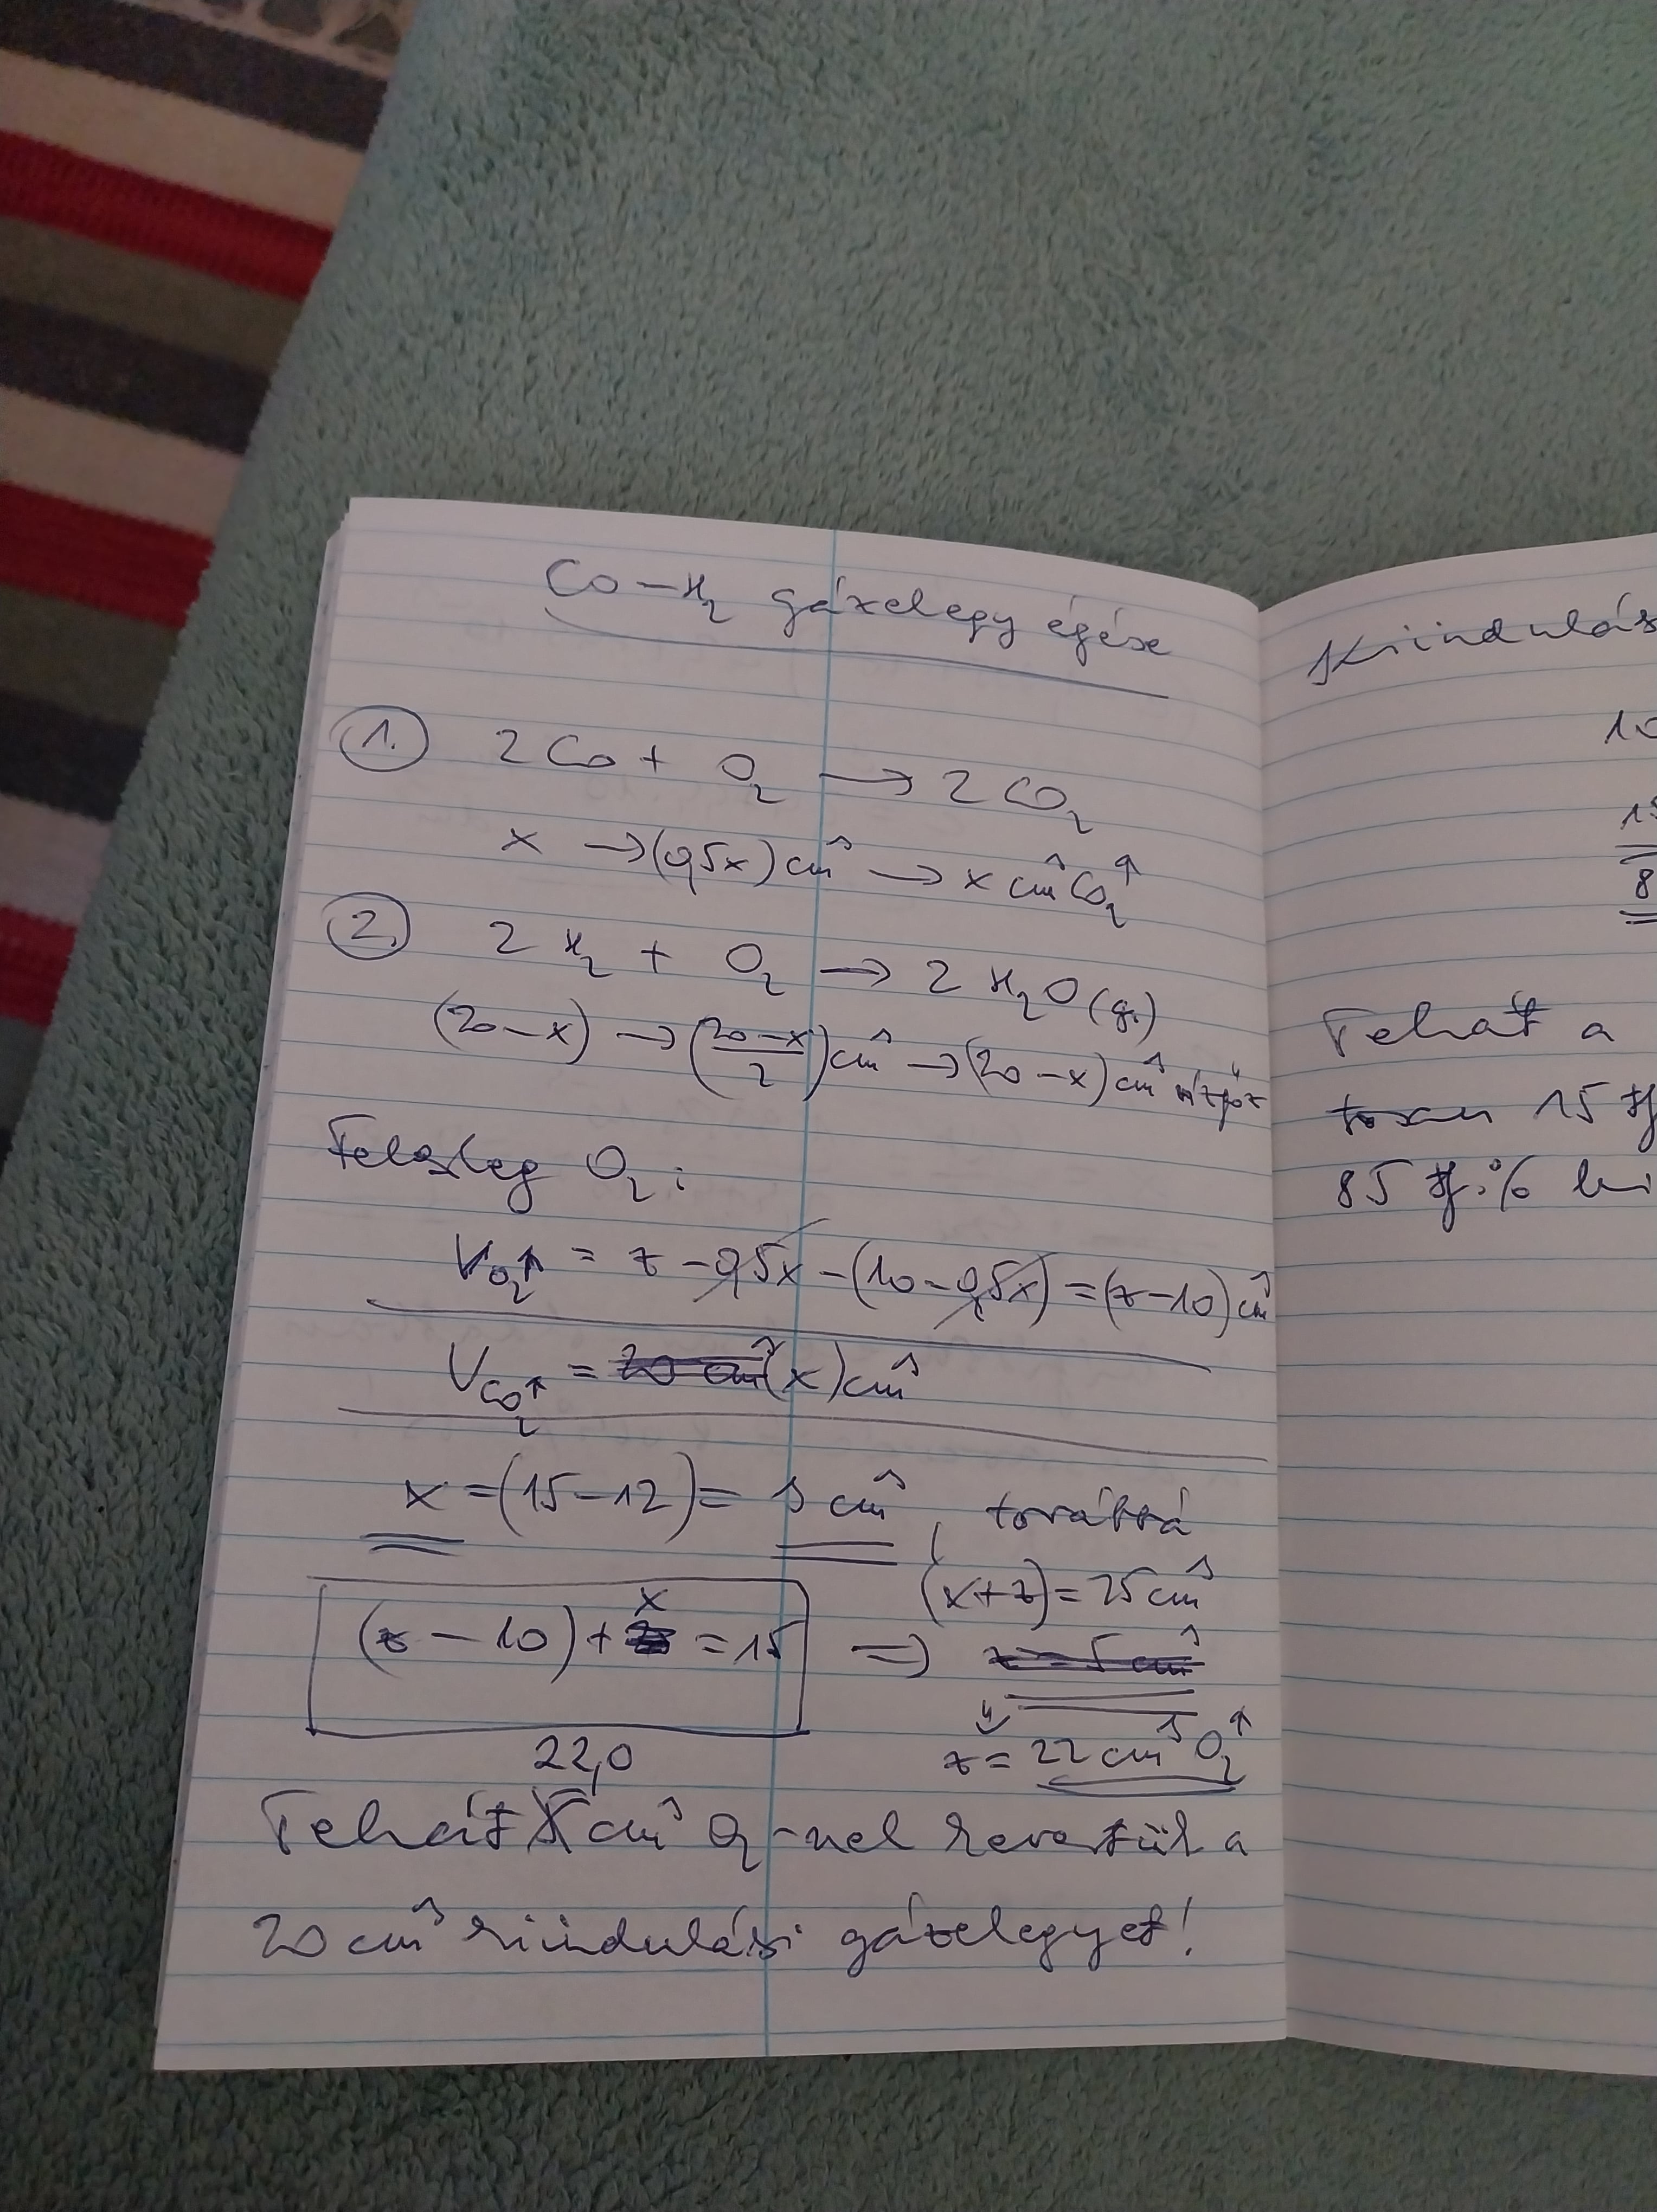 CO – H₂ gázelegy égése
1. 2 CO + O₂ → 2 CO₂
x → (0,5x) cm³ → x cm³ CO₂↑
2. 2 H₂ + O₂ → 2 H₂O (g.)
(20 – x) → (20 – x / 2) cm³ → (20 – x) cm³ vízgőz
Felesleg O₂:
V O₂↑ = z – 0,5x – (10 – 0,5x) = (z – 10) cm³
V CO₂↑ = ~~20 cm³~~ (x) cm³
x = (15 – 12) = 3 cm³, továbbá
(x + z) = 25 cm³
(z – 10) + x = 15 ⇒ ~~z = 5 cm³~~
z = 22 cm³ O₂↑
22,0
Tehát ~~5~~ cm³ O₂-nel kevertük a
20 cm³ kiindulási gázelegyet!
Kiindulás
10
15
8
Tehát a
85 tf.% hi